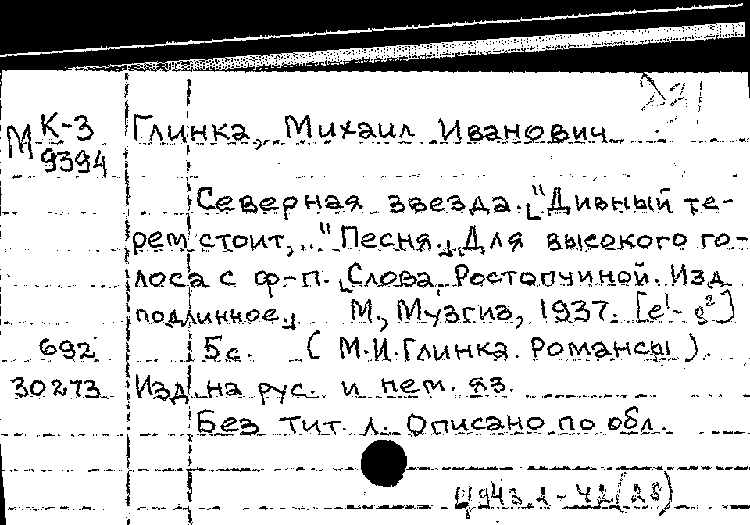 М К-3
9394
Глинка, Михаил Иванович
Северная звезда. "Дивный те-
рем стоит,.." Песня. Для высокого го-
лоса с ф-п. Слова Ростопчиной. Изд
подлинное. М, Музгиз, 1937. [e¹-g²]
692 5с. (М.И.Глинка. Романсы).
30273 Изд на рус. и нем. яз.
Без тит. л. Описано по обл.